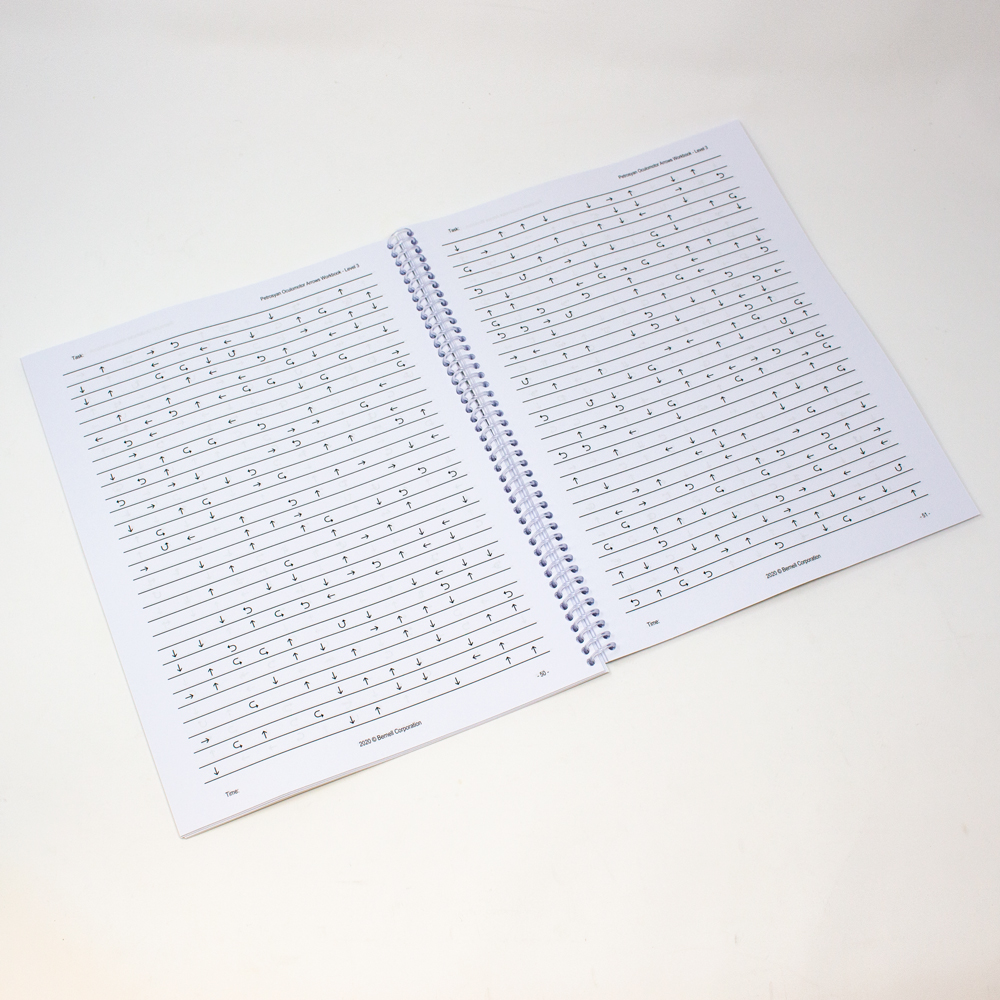 Petrosyan Oculomotor Arrows Workbook - Level 3
Task:
Time:
2020 © Bernell Corporation
- 50 -
Petrosyan Oculomotor Arrows Workbook - Level 3
Task:
Time:
2020 © Bernell Corporation
- 51 -